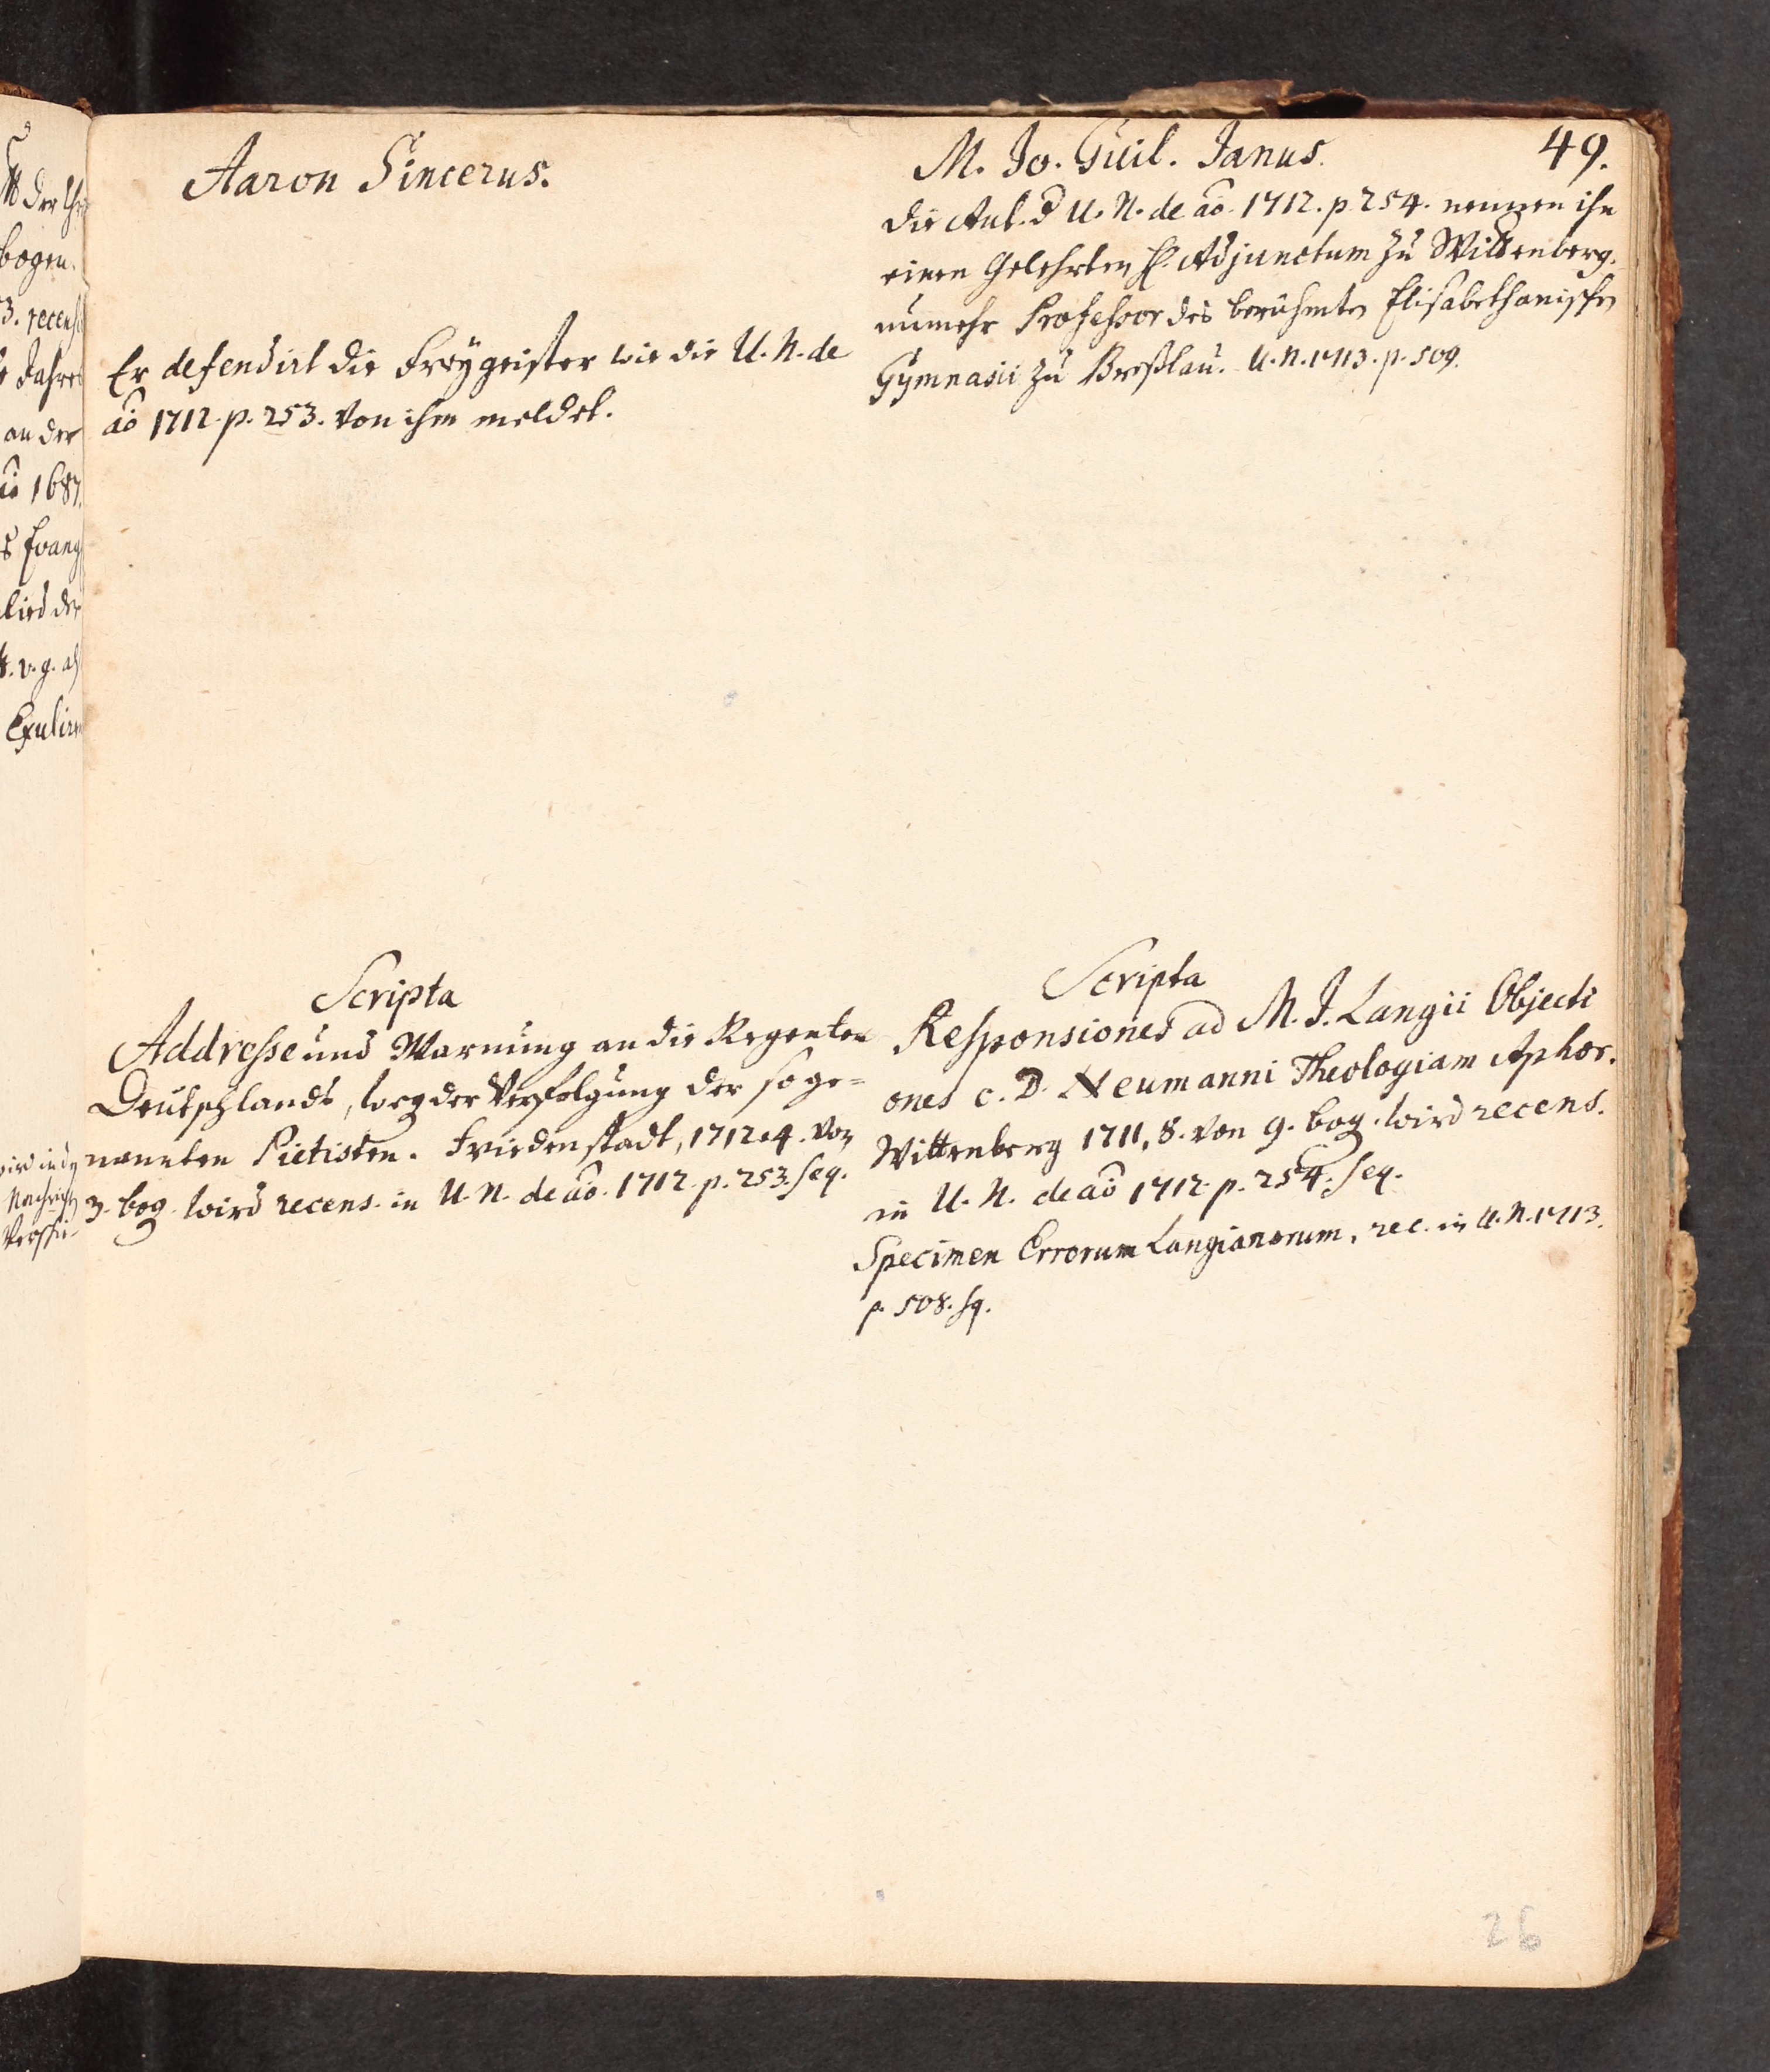 Aaron Sincerus.
Er defendirt die Freygeister wie die U. N. de
ao 1712. p. 253. von ihm meldet.
Scripta
Addresse und Warnung an die Regenten
Deutschlands, weg der Verfolgung der soge=
nannten Pietisten. Friedenstadt, 1712. 4. von
3. bog. wird recens. in U. N. de ao. 1712. p. 253. seq.
49.
M. Jo. Guil. Janus.
die Aut. d U. N. de ao. 1712. p. 254. nennen ihn
einen Gelehrten Adjunctum zu Wittenberg.
nunmehr Professor des berühmten Elisabethanischen
Gymnasii zu Breßlau. U. N. 1713. p. 509.
Scripta
Responsiones ad M. J. Langii Objecti
ones c. D. Neumanni Theologiam Aphor.
Wittenberg 1711, 8. von 9. bog. wird recens.
in U. N. de ao 1712. p. 254. seq.
Specimen Errorum Langianorum, rec. in U. N. 1713.
p. 508. sq.
26
der
bogen.
3. recens
Jahre
an der
ao 1687.
Evang
lied der
v. g. als
Exulir
wird in
Nachricht